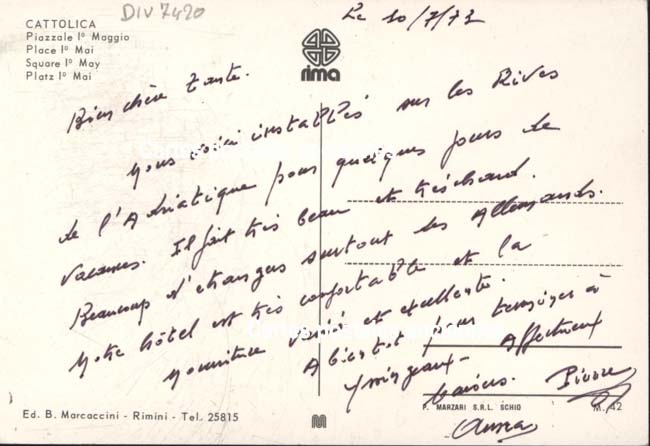 DIV 7420
CATTOLICA
Piazzale Iº Maggio
Place Iº Mai
Square Iº May
Platz Iº Mai
rima
Le 10/7/73
Bien chère Tante.
Nous voici installés sur les Rives
de l'Adriatique pour quelques jours de
vacances. Il fait très beau et très chaud.
Beaucoup d'étrangers surtout des Allemands.
Notre hôtel est très confortable et la
nourriture variée et excellente.
A bientôt pour
Yssingeaux - Affectueux
baisers. Pierre
Ed. B. Marcaccini - Rimini - Tel. 25815
M
F. MARZARI S.R.L. SCHIO
M. 42